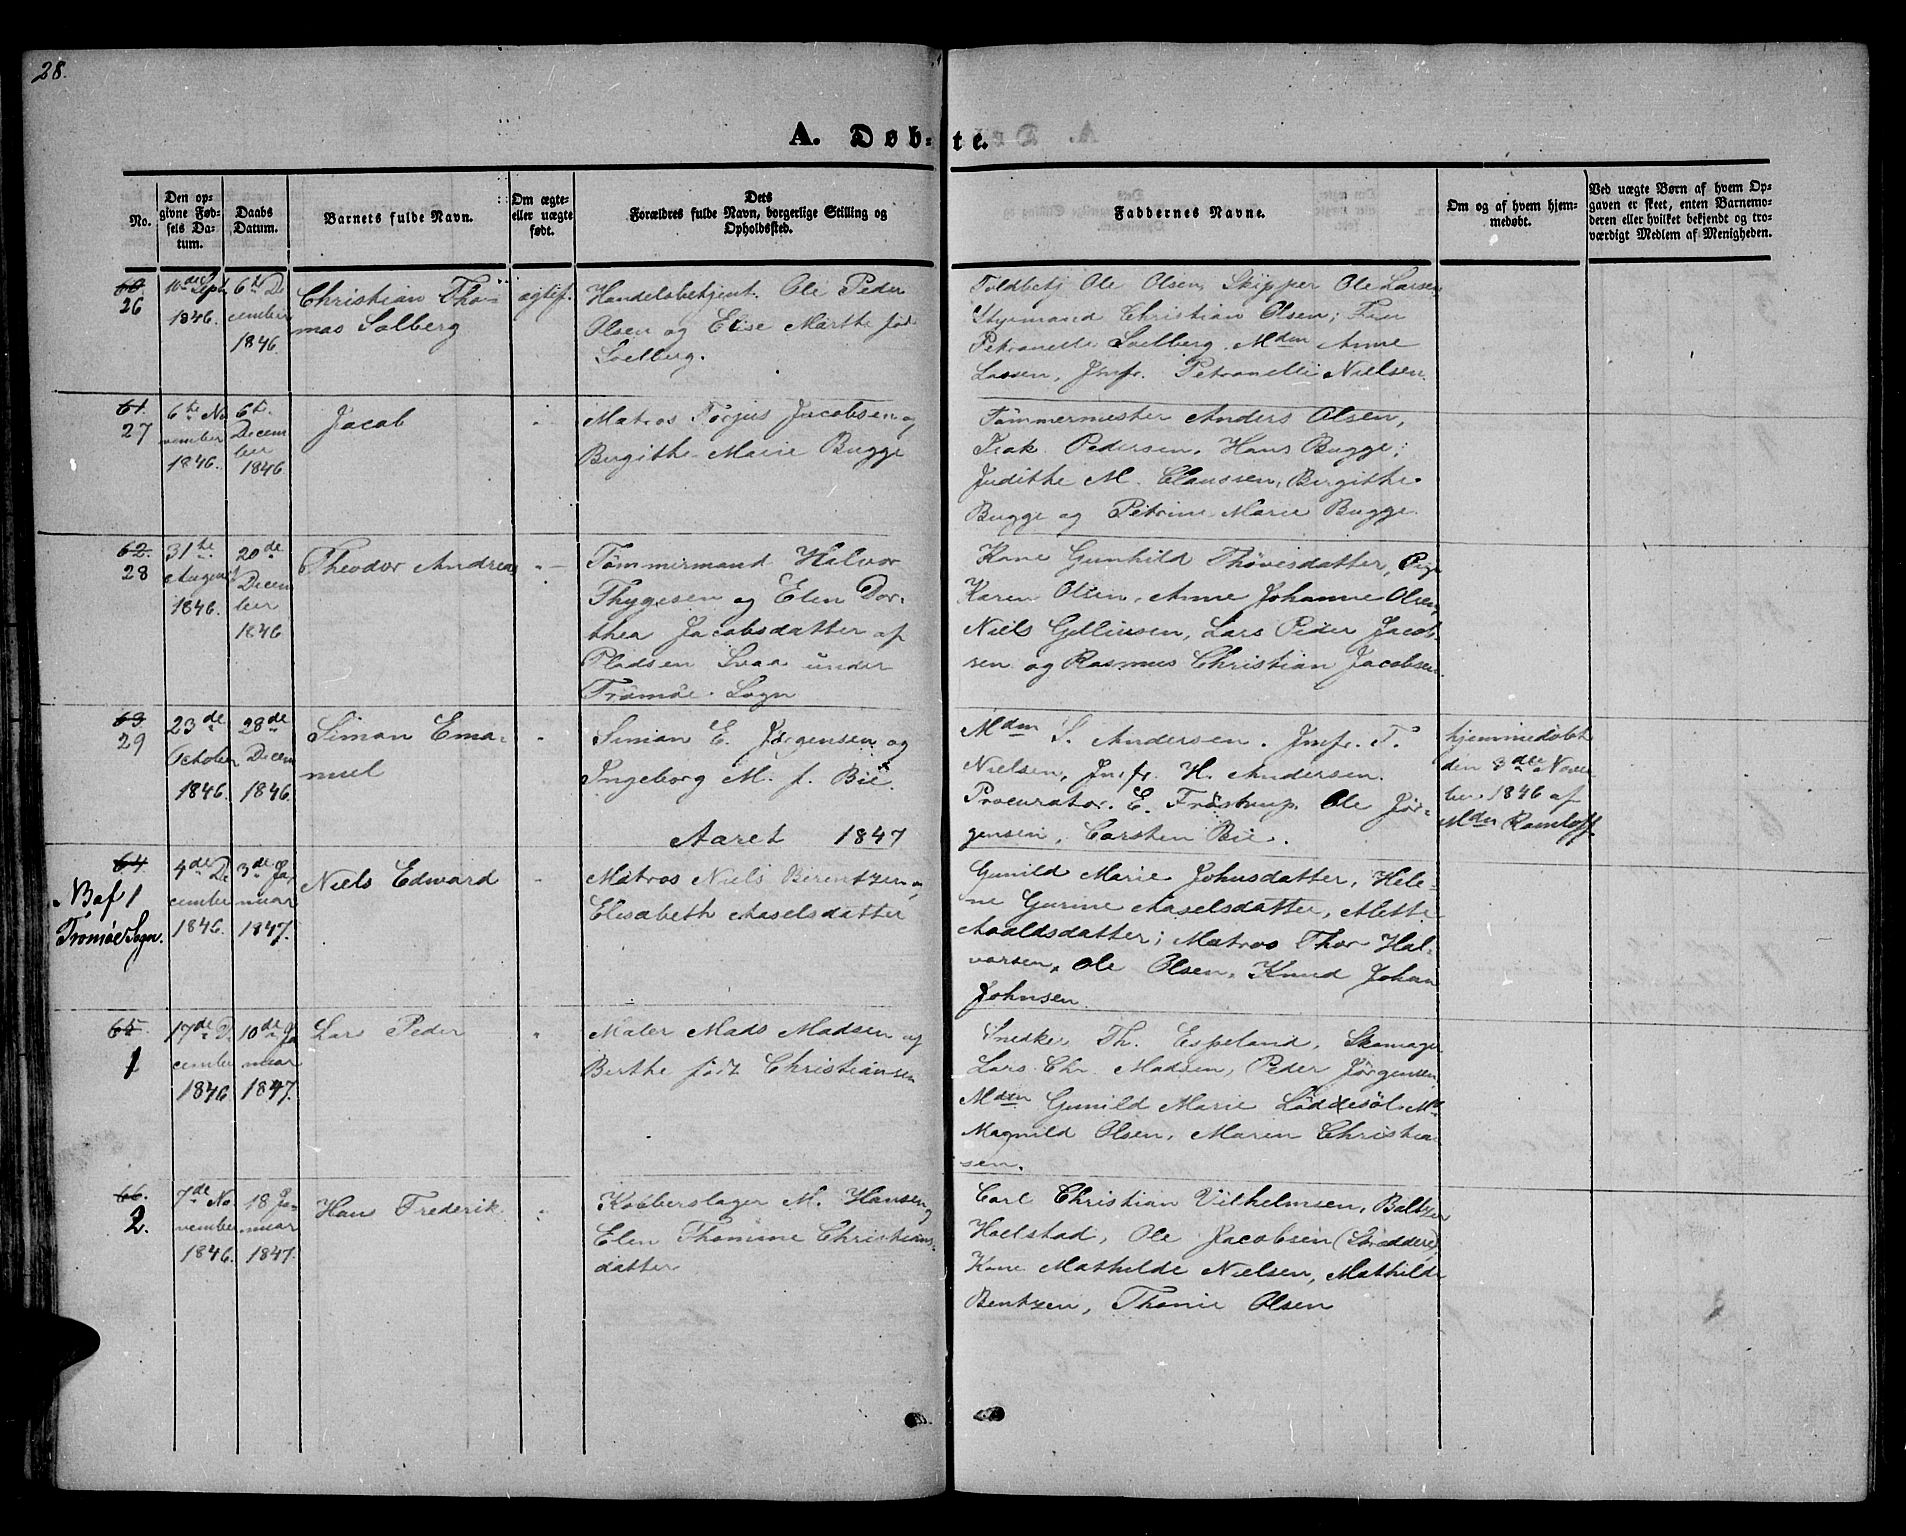 28.
A. Døb-
te.
No.
Den op-
givne Fød-
sels Da-
tum.
Daabs
Datum.
Barnets fulde Navn.
Om ægte-
eller uægte
født.
Dets
Forældres fulde Navn, borgerlige Stilling og
Opholdssted.
Faddernes Navne.
Om og af hvem hjem-
medøbt.
Ved uægte Børn af hvem Op-
gaven er skeet, enten Barnemo-
deren eller hvilket bekjendt og tro-
værdigt Medlem af Menigheden.
60.
26
10de Sept
1846.
6te De
cember
1846.
Christian Tho-
mas Solberg
ægtef.
Handelsbetjent. Ole Peder
Olsen og Elise Marthe fød
Solberg.
Toldbetj Ole Olsen, Skipper Ole Larsen
Styrmand Christian Olsen;
Petronelle Solberg, Mdm Anne
Lassen, Jmfr. Petronelle Nielsen.
61.
27
6te No
vember
1846.
6te
Decem
ber
1846
Jacob
Matros Tørjus Jacobsen og
Birgithe Marie Bugge
Tømmermester Anders Olsen,
Isak Pedersen, Hans Bugge;
Judithe M. Claussen, Birgithe
Bugge og Petrine Marie Bugge.
62.
28
31te
August
1846.
20de
Decem
ber
1846
Theodor Andreas
Tømmermand Halvor
Thygesen og Elen Dor-
thea Jacobsdatter af
Pladsen Svaa under
Tromøe Sogn
Kone Gunhild Thovesdatter, Pige
Karen Olsen, Anne Johanne Olsen,
Niels Gelliusen, Lars Peder Jacob-
sen og Rasmus Christian Jacobsen
63.
29
23de
October
1846.
28de
Decem
1846.
Simon Ema-
nuel
Simon E. Jørgensen og
Ingeborg M. f. Bie.
Mdm S. Andersen. Jmfr. T.
Nielsen, Jmfr. H. Andersen.
Procurator. E. Frøstrup, Ole Jør-
gensen, Carsten Bie.
hjemmedøbt
den 3die Novem-
ber 1846 af
Mdm Ramloff.
Aaret 1847
64
N3 af 1
Tromøe Sogn.
4de De
cember
1846.
3de Ja
nuar
1847.
Niels Edward
Matros Niels Berentzen og
Elisabeth Aaselsdatter
Gunild Marie Johnsdatter, Hele-
ne Gurine Aaselsdatter, Mette
Avaldsdatter; Matros Thor Hal-
vorsen, Ole Olsen, Knud Johan
Johnsen
65.
1
17de De
cember
1846
10de Ja
nuar
1847.
Lars Peder
Maler Mads Madsen og
Berthe født Christiansen
Snedker Th. Espeland, Skomager
Lars Chr. Madsen, Peder Jørgensen
Mdm Gunild Marie Løddesøl M
Magnild Olsen, Maren Christian
sen.
66.
2.
7de No
vember
1846.
18 Ja-
nuar
1847.
Hans Frederik
Kobberslager M. Hansen og
Elen Thomine Christians-
datter
Carl Christian Vilhelmsen, Baltzer
Holstad, Ole Jacobsen (Skrædder),
Kone Mathilde Nielsen, Mathilde
Bentzen, Thomie Olsen